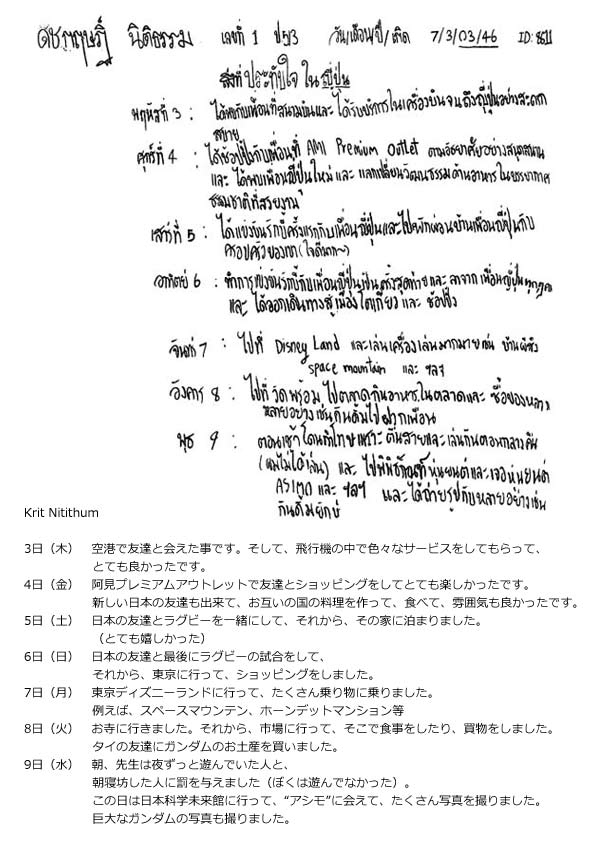 นิติธรรม เลขที่ 1 ป5/3 วัน/เดือน/ปี/เกิด 7/3/03/46 ID:8611
สิ่งที่ประทับใจ ใน ญี่ปุ่น
พฤหัสที่ 3 : ได้พบกับเพื่อนที่สนามบินและ ได้รับบริการในเครื่องบินจนถึงญี่ปุ่นอย่างสะดวก
สบาย
ศุกร์ที่ 4 : ได้ช้อปปิ้งกับเพื่อนที่ AMI Premium Outlet ตามอัธยาศัยอย่างสนุกสนาน
และ ได้พบเพื่อนญี่ปุ่นใหม่ และ แลกเปลี่ยนวัฒนธรรมด้านอาหารในบรรยากาศ
ธรรมชาติที่สวยงาม
เสาร์ที่ 5 : ได้แข่งขันรักบี้ครั้งแรกกับเพื่อนญี่ปุ่นและไปพักผ่อนบ้านเพื่อนญี่ปุ่นกับ
ครอบครัวของเขา (ใจดีมาก~)
อาทิตย์ 6 : ทำการแข่งขันรักบี้กับเพื่อนญี่ปุ่นเป็นครั้งสุดท้ายและ ลาจาก เพื่อนญี่ปุ่นทุกคน
และ ได้ออกเดินทางสู่เมืองโตเกียว และ ช้อปปิ้ง
จันทร์ 7 : ไปที่ Disney Land และเล่นเครื่องเล่นมากมายเช่น บ้านผีสิง
space mountain และ ฯลฯ
อังคาร 8 : ไปที่ วัด พร้อม ไปตลาดกินอาหารในตลาดและ ซื้อของ
หลายอย่างเช่นกันดั้มไปฝากเพื่อน
พุธ 9 : ตอนเช้าโดนทำโทษเพราะ ตื่นสายและเล่นกันตอนกลางคืน
(ผมไม่ได้เล่น) และ ไปพิพิธภัณฑ์หุ่นยนต์และเจอหุ่นยนต์
ASIMO และ ฯลฯ และได้ถ่ายรูปกับหลายอย่างเช่น
กันดั้มยักษ์
Krit Nitithum
3日（木） 空港で友達と会えた事です。そして、飛行機の中で色々なサービスをしてもらって、
とても良かったです。
4日（金） 阿見プレミアムアウトレットで友達とショッピングをしてとても楽しかったです。
新しい日本の友達も出来て、お互いの国の料理を作って、食べて、雰囲気も良かったです。
5日（土） 日本の友達とラグビーを一緒にして、それから、その家に泊まりました。
（とても嬉しかった）
6日（日） 日本の友達と最後にラグビーの試合をして、
それから、東京に行って、ショッピングをしました。
7日（月） 東京ディズニーランドに行って、たくさん乗り物に乗りました。
例えば、スペースマウンテン、ホーンデットマンション等
8日（火） お寺に行きました。それから、市場に行って、そこで食事をしたり、買物をしました。
タイの友達にガンダムのお土産を買いました。
9日（水） 朝、先生は夜ずっと遊んでいた人と、
朝寝坊した人に罰を与えました（ぼくは遊んでなかった）。
この日は日本科学未来館に行って、“アシモ”に会えて、たくさん写真を撮りました。
巨大なガンダムの写真も撮りました。